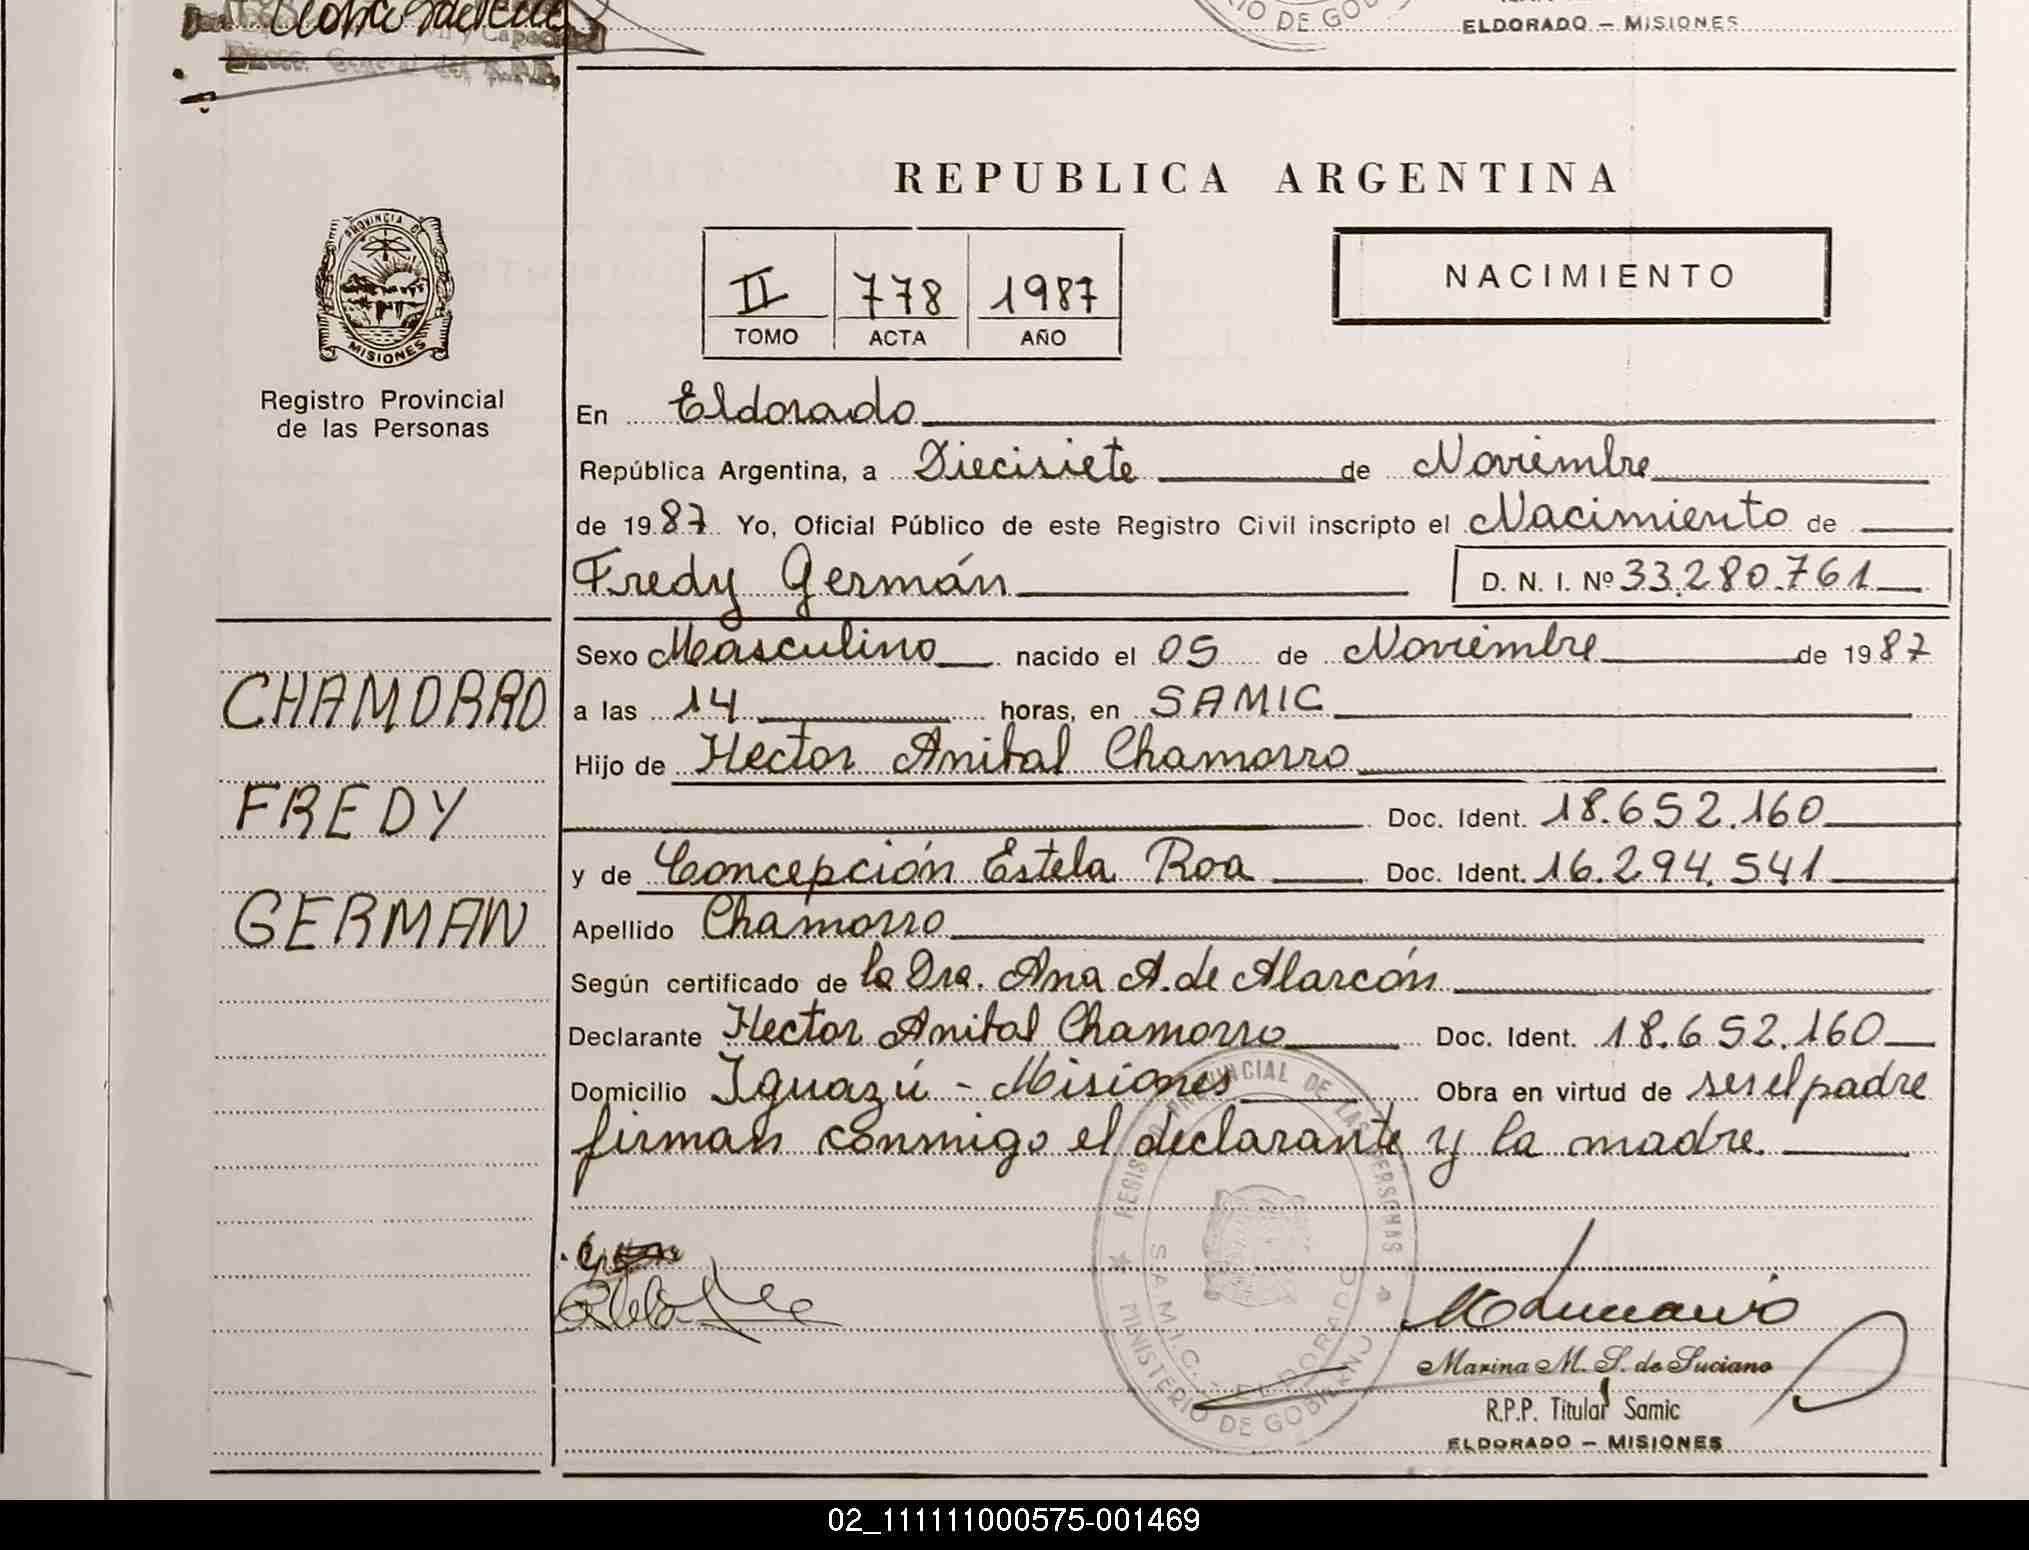 General del R.P.P.
RIO DE GOB
ELDORADO – MISIONES
REPUBLICA ARGENTINA
PROVINCIA DE
MISIONES
Registro Provincial
de las Personas
II 778 1987
TOMO ACTA AÑO
NACIMIENTO
En Eldorado
República Argentina, a Diecisiete de Noviembre
de 1987 Yo, Oficial Público de este Registro Civil inscripto el Nacimiento de
Fredy Germán D. N. I. Nº 33.280.761
Sexo Masculino nacido el 05 de Noviembre de 1987
CHAMORRO
a las 14 horas, en SAMIC
Hijo de Hector Anibal Chamorro
FREDY
Doc. Ident. 18.652.160
y de Concepción Estela Roa Doc. Ident. 16.294.541
GERMAN
Apellido Chamorro
Según certificado de la Dra. Ana A. de Alarcón
Declarante Hector Anibal Chamorro Doc. Ident. 18.652.160
Domicilio Iguazú - Misiones Obra en virtud de ser el padre
firman conmigo el declarante y la madre.
REGISTRO PROVINCIAL DE LAS PERSONAS
S.A.M.I.C. - ELDORADO
MINISTERIO DE GOBIERNO
Marina M. S. de Luciano
R.P.P. Titular Samic
ELDORADO – MISIONES
02_111111000575-001469